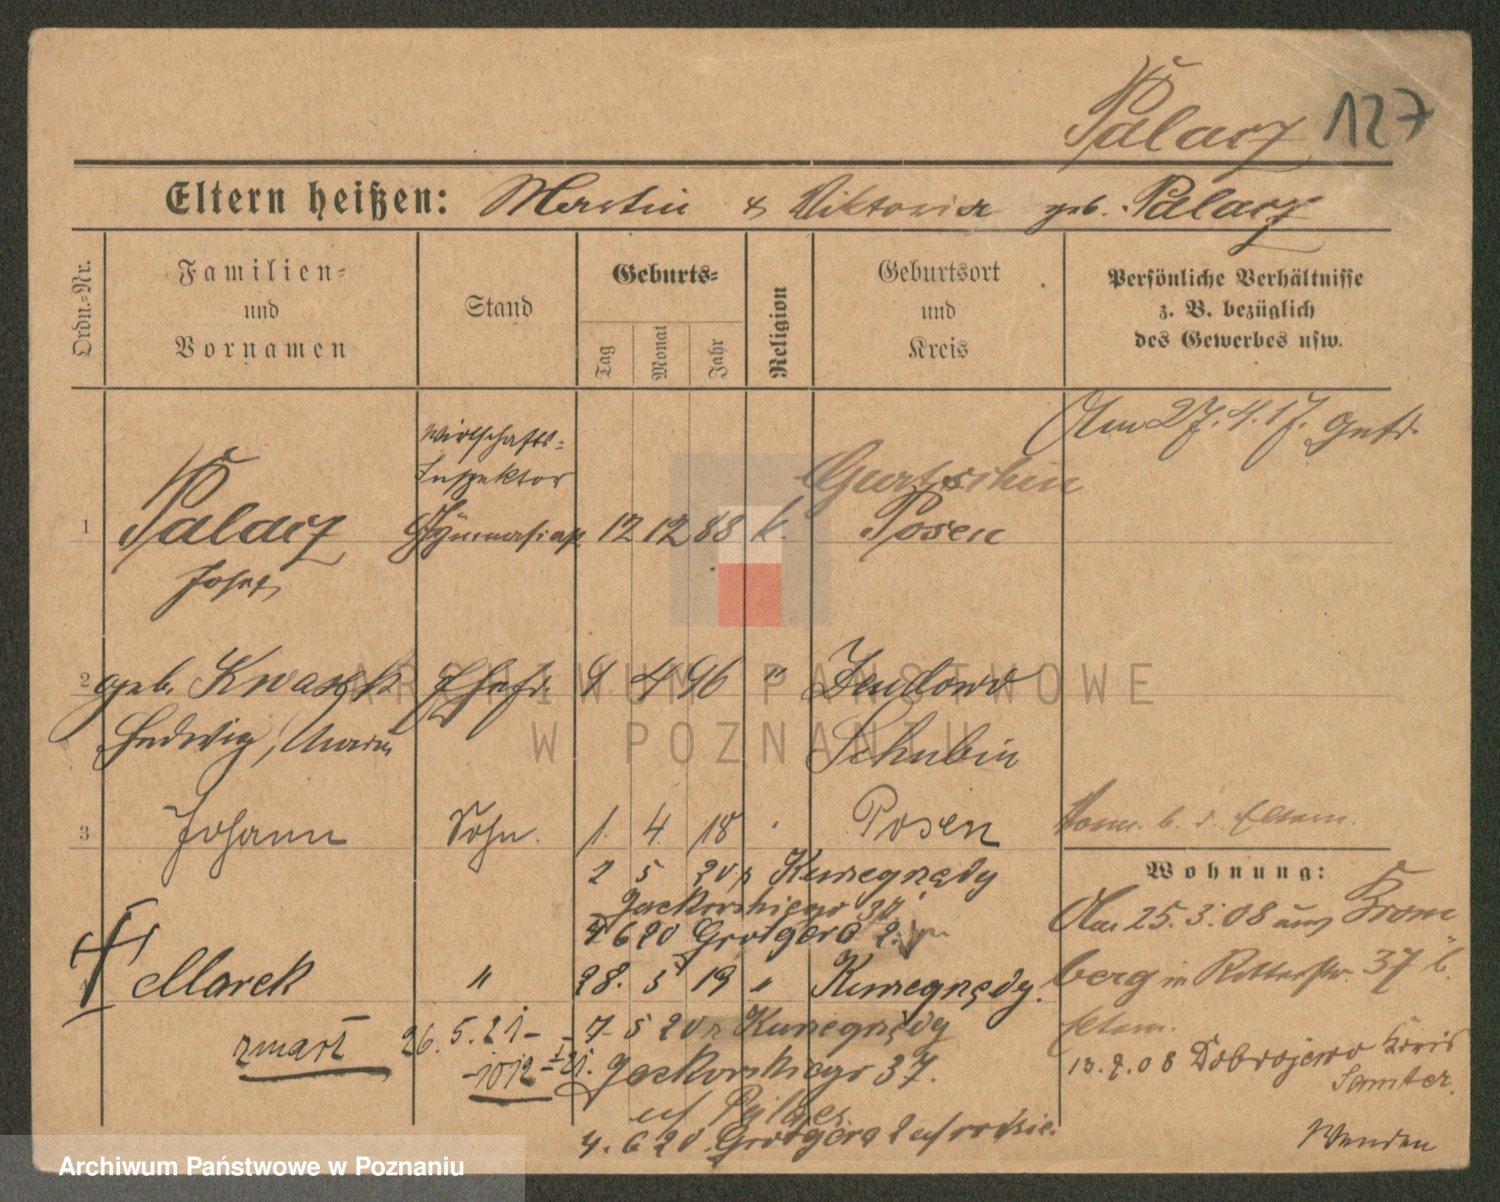 Palacz 127
Eltern heißen: Martin & Viktoria geb. Palacz
Ordn.-Nr.
Familien-
und
Vornamen
Stand
Geburts-
Tag
Monat
Jahr
Religion
Geburtsort
und
Kreis
Persönliche Verhältnisse
z. B. bezüglich
des Gewerbes usw.
Am 27.4.17. getr.
Wirtschafts-
Inspektor
Gurtschin
1 Palacz Gymnasiast 12 12 88 k. Posen
Josef
2 geb. Kwaszk Ehefr. 9 4 96 " Zendowo
Hedwig, Maria Schubin
3 Johann Sohn. 1. 4. 18 Posen
b. d. Eltern.
Wohnung:
2 5 20 z Kunegundy
Jackowskiego 37
4 6 20 Grotgera 2.
Am 25.3.08 aus Krom
berg in Ritterstr. 37 b.
Eltern.
4 Marek " 28. 5 19 " Kunegundy.
zmarł 26.5.21 - 7 5 20 z Kunegundy
-1012 - 21. Jackowskiego 37.
4. 6 20. Grotgera 2
13.9.08 Dobrojewo Kreis
Samter.
Wenden
ARCHIWUM PAŃSTWOWE
W POZNANIU
Archiwum Państwowe w Poznaniu